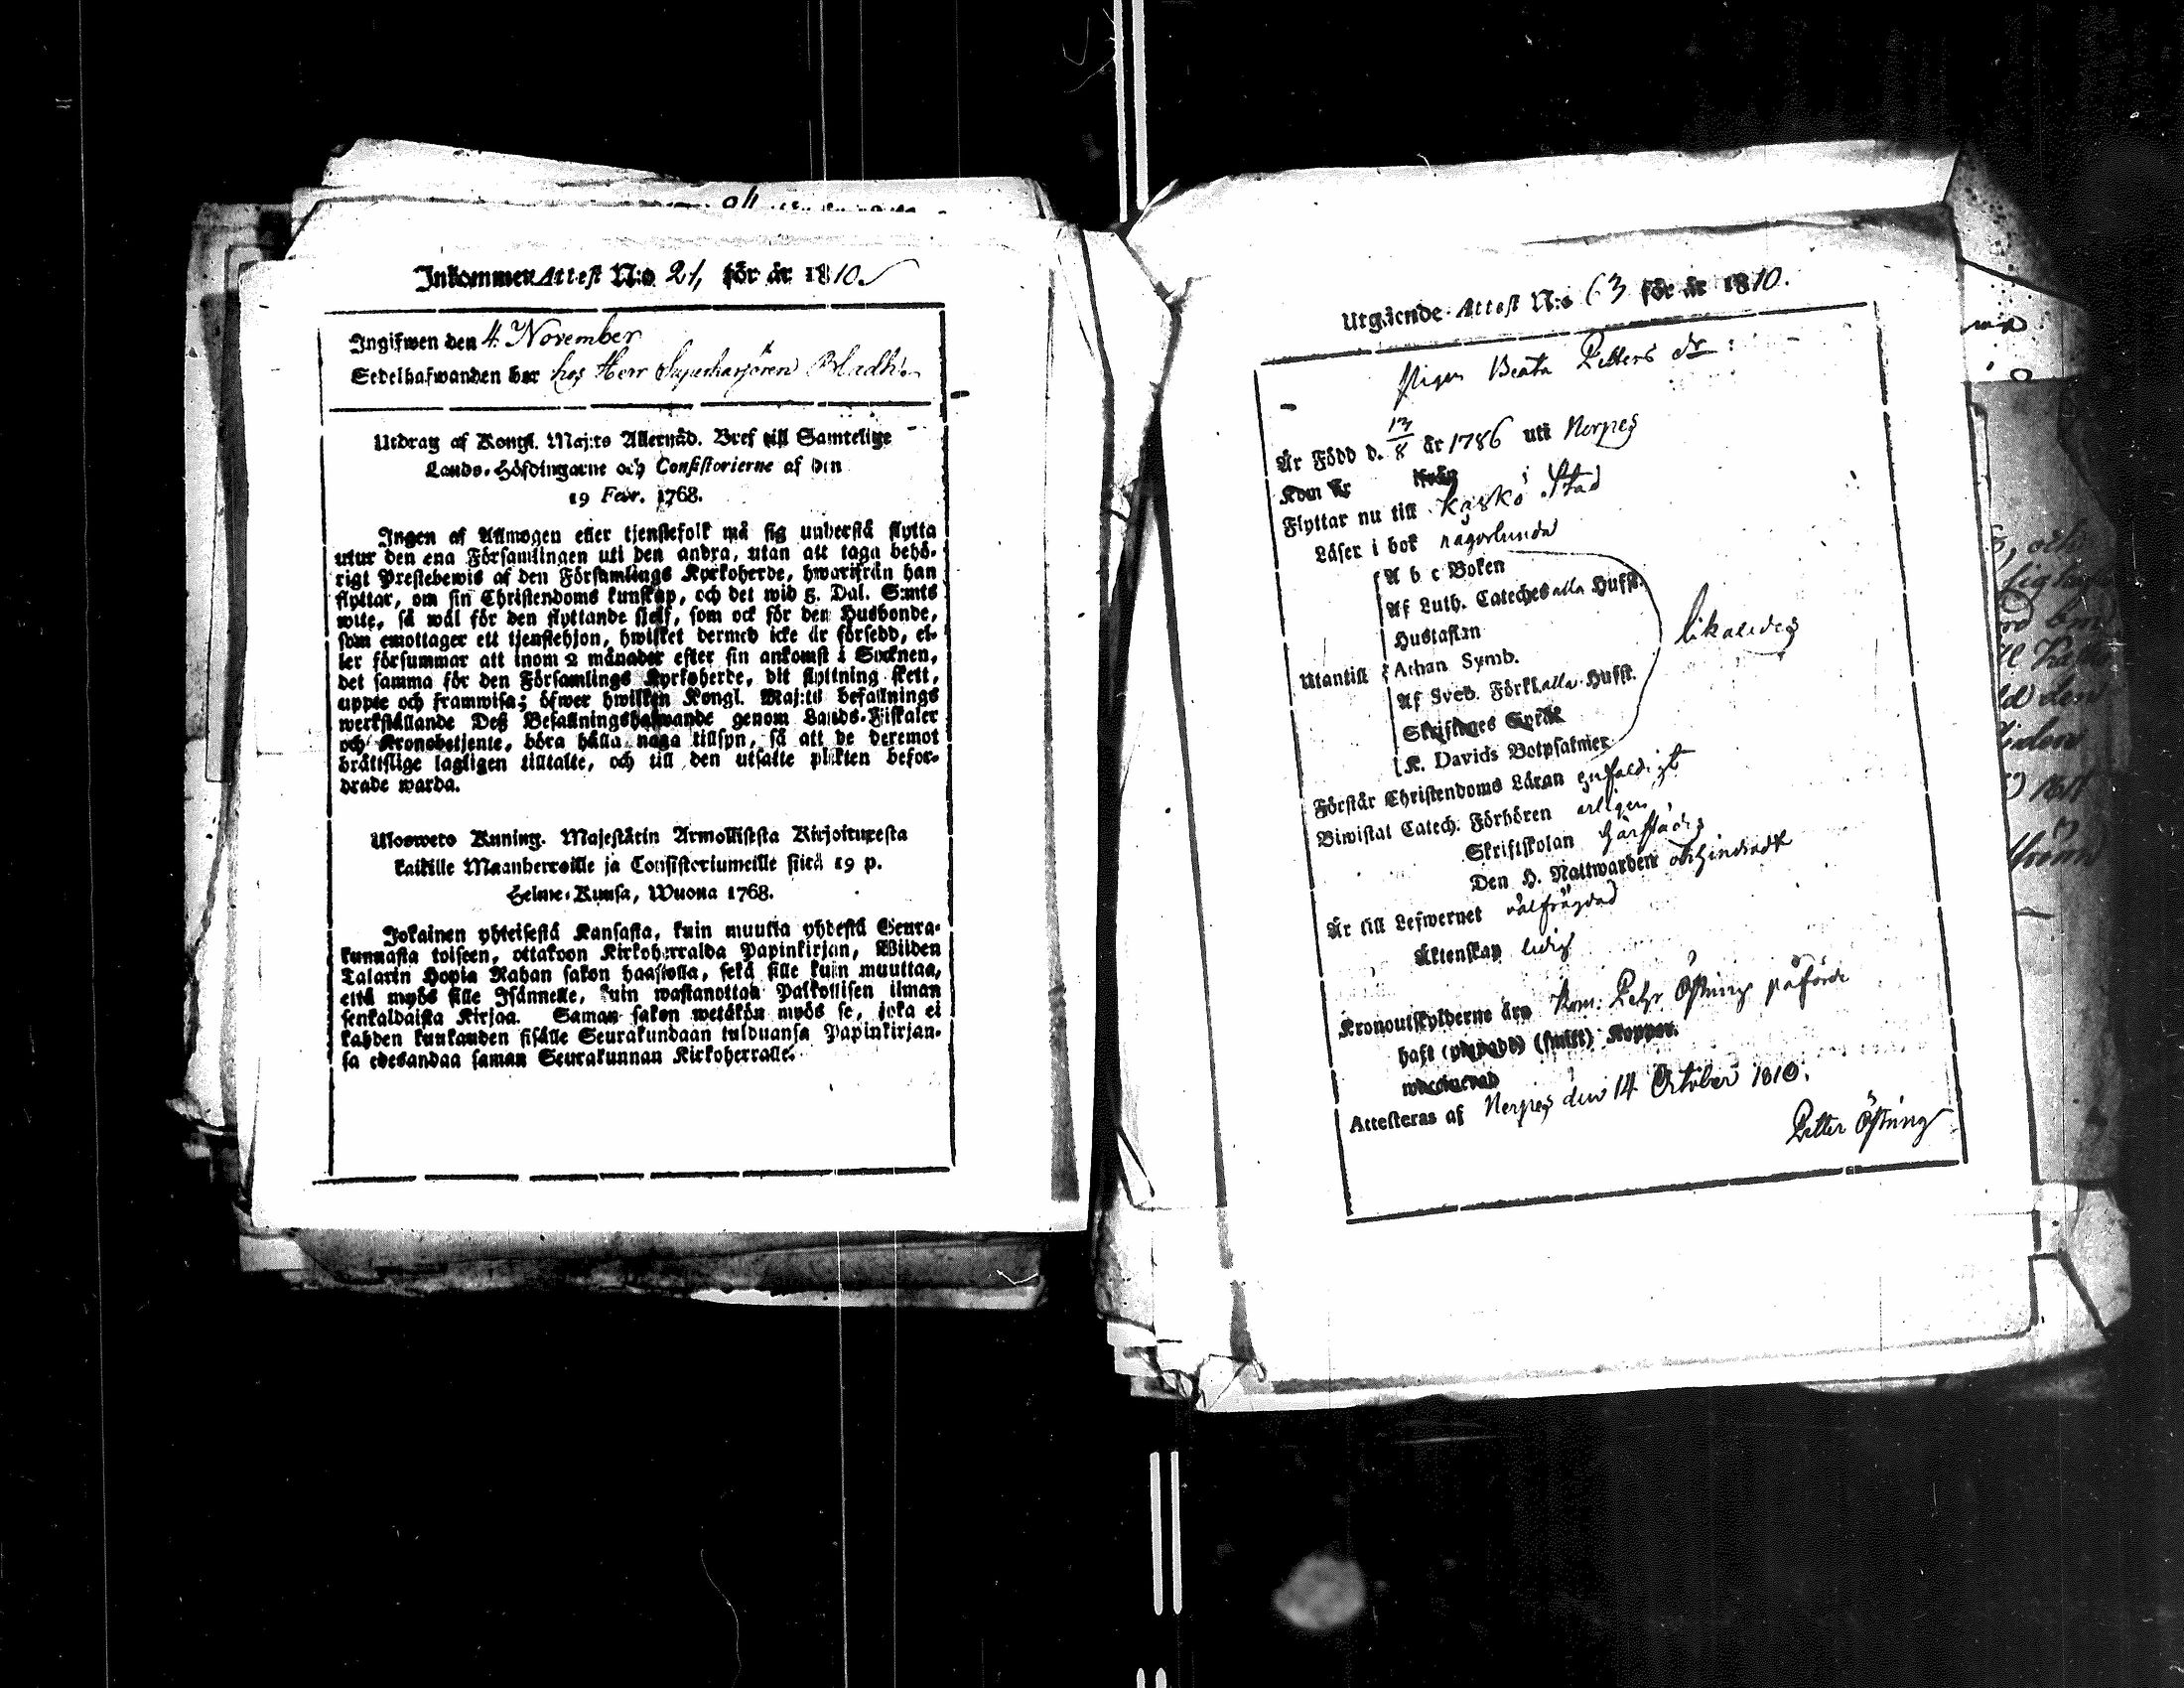 Inkommen Attest N:o 21, för år 1810.
Ingifwen den 4 November
Sedelhafwanden bor hos Herr Superkarjören Bladh
Utdrag af Kongl. Maj:ts Allernåd. Bref till Samtelige
Lands-Höfdingarne och Consistorierne af den
19 Febr. 1768.
Ingen af Allmogen eller tjenstefolk må sig understå flytta
utur den ena Församlingen uti den andra, utan att taga behö-
rigt Prestebewis af den Församlings Kyrkoherde, hwarifrån han
flyttar, om sin Christendoms kunskap, och det wid 5. Dal. S:mts
wite, så wäl för den flyttande sjelf, som ock för den Husbonde,
som emottager ett tjenstehjon, hwilket dermed icke är försedd, el-
ler försummar att inom 2 månader efter sin ankomst i Socknen,
det samma för den Församlings Kyrkoherde, dit flyttning skett,
uppte och framwisa; öfwer hwilken Kongl. Maj:ts befallnings
werkställande Deß Befallningshafwande genom Lands-Fiskaler
och Kronobetjente, böra hålla noga tillsyn, så att de deremot
bråttslige lagligen tilltalte, och till den utsatte plikten befor-
drade warda.
Ulosweto Kuning. Majestätin Armollisesta Kirjoituxesta
kaikille Maanherroille ja Consistoriumeille siitä 19 p.
Helme-Kuusa, Wuona 1768.
Jokainen yhteisestä Kansasta, kuin muutta yhdestä Seura-
kunnasta toiseen, ottakoon Kirkoherralda Papinkirjan, Wiiden
Talarin Hopia Rahan sakon haastolla, sekä sille kuin muuttaa,
että myös sille Isännelle, kuin wastanottaa Palkollisen ilman
senkaldaista Kirjaa. Saman sakon wetäkön myös se, joka ei
kahden kuukauden sisälle Seurakundaan tulduansa Papinkirjan-
sa edesandaa saman Seurakunnan Kirkoherralle.
Utgående Attest N:o 63 för år 1810.
Pigan Beata Petters dr:
Är Född d. 13/8 år 1786 uti Nerpes
Kom År ifrån
Flyttar nu till Kaskö Stad
Läser i bok någorlunda
A b c Boken
Af Luth. Cateches alla Hufst.
Hustaflan
Utantill Athan Symb. likaledes
Af Sveb. Förkl. alla Hufst.
Skriftenes Språk
K. Davids Botpsalmer
Förstår Christendoms Läran enfaldigt
Biwistat Catech. Förhören årligen
Skriftskolan härstädes
Den H. Nattwarden ohindradt
Är till Lefwernet välfrägdad
Äktenskap ledig
Kronoutskylderne äro Kom: Petr Östning påförde
haft (ympade) (smitt) Koppor.
waccinerad
Attesteras af Nerpes den 14 October 1810.
Petter Östning